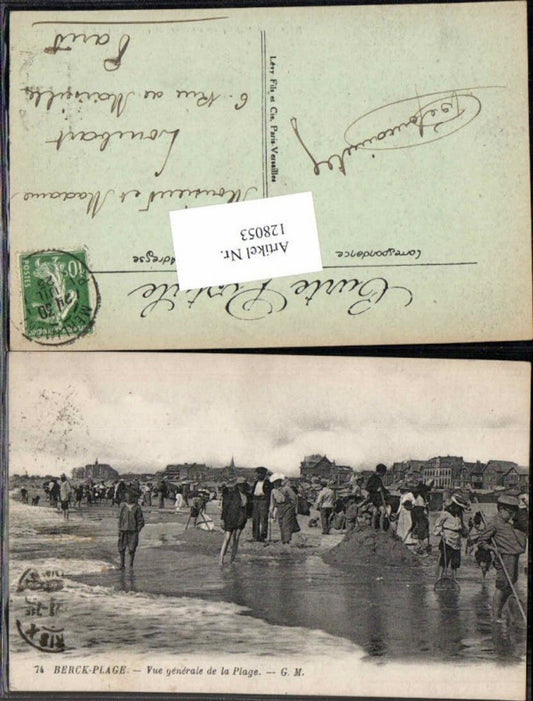 Carte Postale
Correspondance
Adresse
Artikel Nr.
128053
Monsieur et Madame
Loubart
6. Rue de Marseille
Paris
Lévy Fils et Cie, Paris-Versailles
10
POSTES
74 BERCK-PLAGE. — Vue générale de la Plage. — G. M.